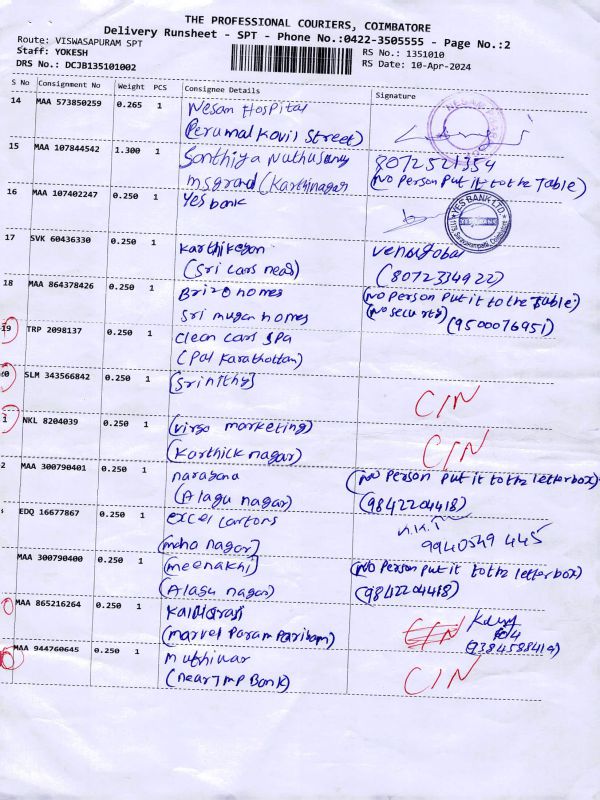 THE PROFESSIONAL COURIERS, COIMBATORE
Delivery Runsheet - SPT - Phone No.:0422-3505555 - Page No.:2
Route: VISWASAPURAM SPT
Staff: YOKESH
RS No.: 1351010
DRS No.: DCJB135101002
RS Date: 10-Apr-2024
S No Consignment No Weight PCS Consignee Details Signature
14 MAA 573850259 0.265 1 Nesam Hospital
(Perumal Kovil Street)
15 MAA 107844542 1.300 1 8072521354
(No Person Put it to the Table)
16 MAA 107402247 0.250 1 Yes bank
YES BANK LTD.
17 SVK 60436330 0.250 1 Karthikeyan
(Sri Cars near) (8072334922)
18 MAA 864378426 0.250 1 (No Person Put it to the Table)
Sri mugan homes (No security) (9500076951)
19 TRP 2098137 0.250 1 Clean Cars SPa
(Pal Karathottam)
SLM 343566842 0.250 1 (Srinithy) C/N
NKL 8204039 0.250 1 (Virgo marketing) C/N
(Karthick nagar)
2 MAA 300790401 0.250 1 narayana (No Person Put it to the letterbox)
(Alagu nagar) (9842204418)
EDQ 16677867 0.250 1 excel cartons
9940549 445
MAA 300790400 0.250 1 (meenakhi) (No Person Put it to the letterbox)
(Alagu nagar) (9842204418)
MAA 865216264 0.250 1
C/N
MAA 944760645 0.250 1 C/N
(near TMP Bank)